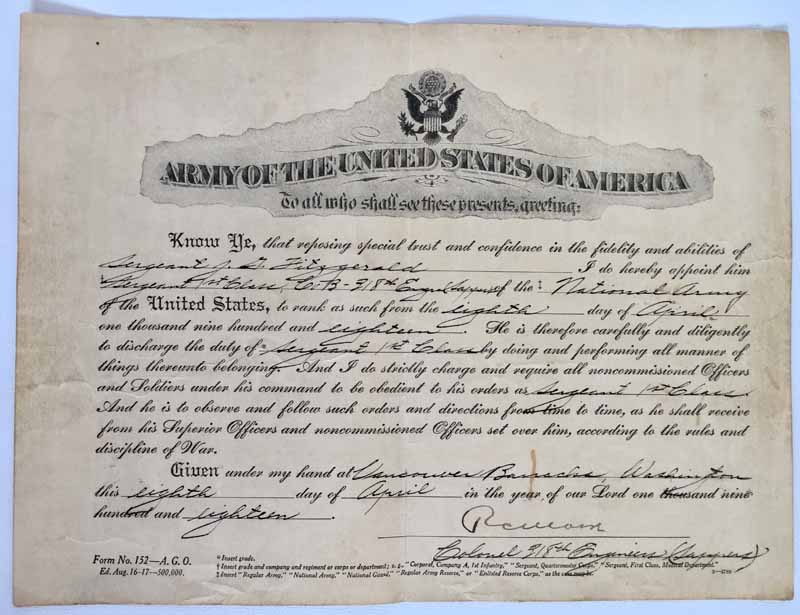 ARMY OF THE UNITED STATES OF AMERICA
To all who shall see these presents, greeting:
Know Ye, that reposing special trust and confidence in the fidelity and abilities of
Sergeant J. D. Fitzgerald I do hereby appoint him
Sergeant 1st Class, Co. B - 318th Engrs (Sappers) of the ‡ National Army
of the United States, to rank as such from the eighth day of April
one thousand nine hundred and eighteen. He is therefore carefully and diligently
to discharge the duty of * Sergeant 1st Class by doing and performing all manner of
things thereunto belonging. And I do strictly charge and require all noncommissioned Officers
and Soldiers under his command to be obedient to his orders as Sergeant 1st Class.
And he is to observe and follow such orders and directions from time to time, as he shall receive
from his Superior Officers and noncommissioned Officers set over him, according to the rules and
discipline of War.
Given under my hand at Vancouver Barracks, Washington
this eighth day of April in the year of our Lord one thousand nine
hundred and eighteen.
Colonel 318th Engineers (Sappers)
Form No. 152—A. G. O.
Ed. Aug. 16-17—500,000.
* Insert grade.
† Insert grade and company and regiment or corps or department; e. g. "Corporal, Company A, 1st Infantry," "Sergeant, Quartermaster Corps," "Sergeant, First Class, Medical Department."
‡ Insert "Regular Army," "National Army," "National Guard," "Regular Army Reserve," or "Enlisted Reserve Corps," as the case may be.